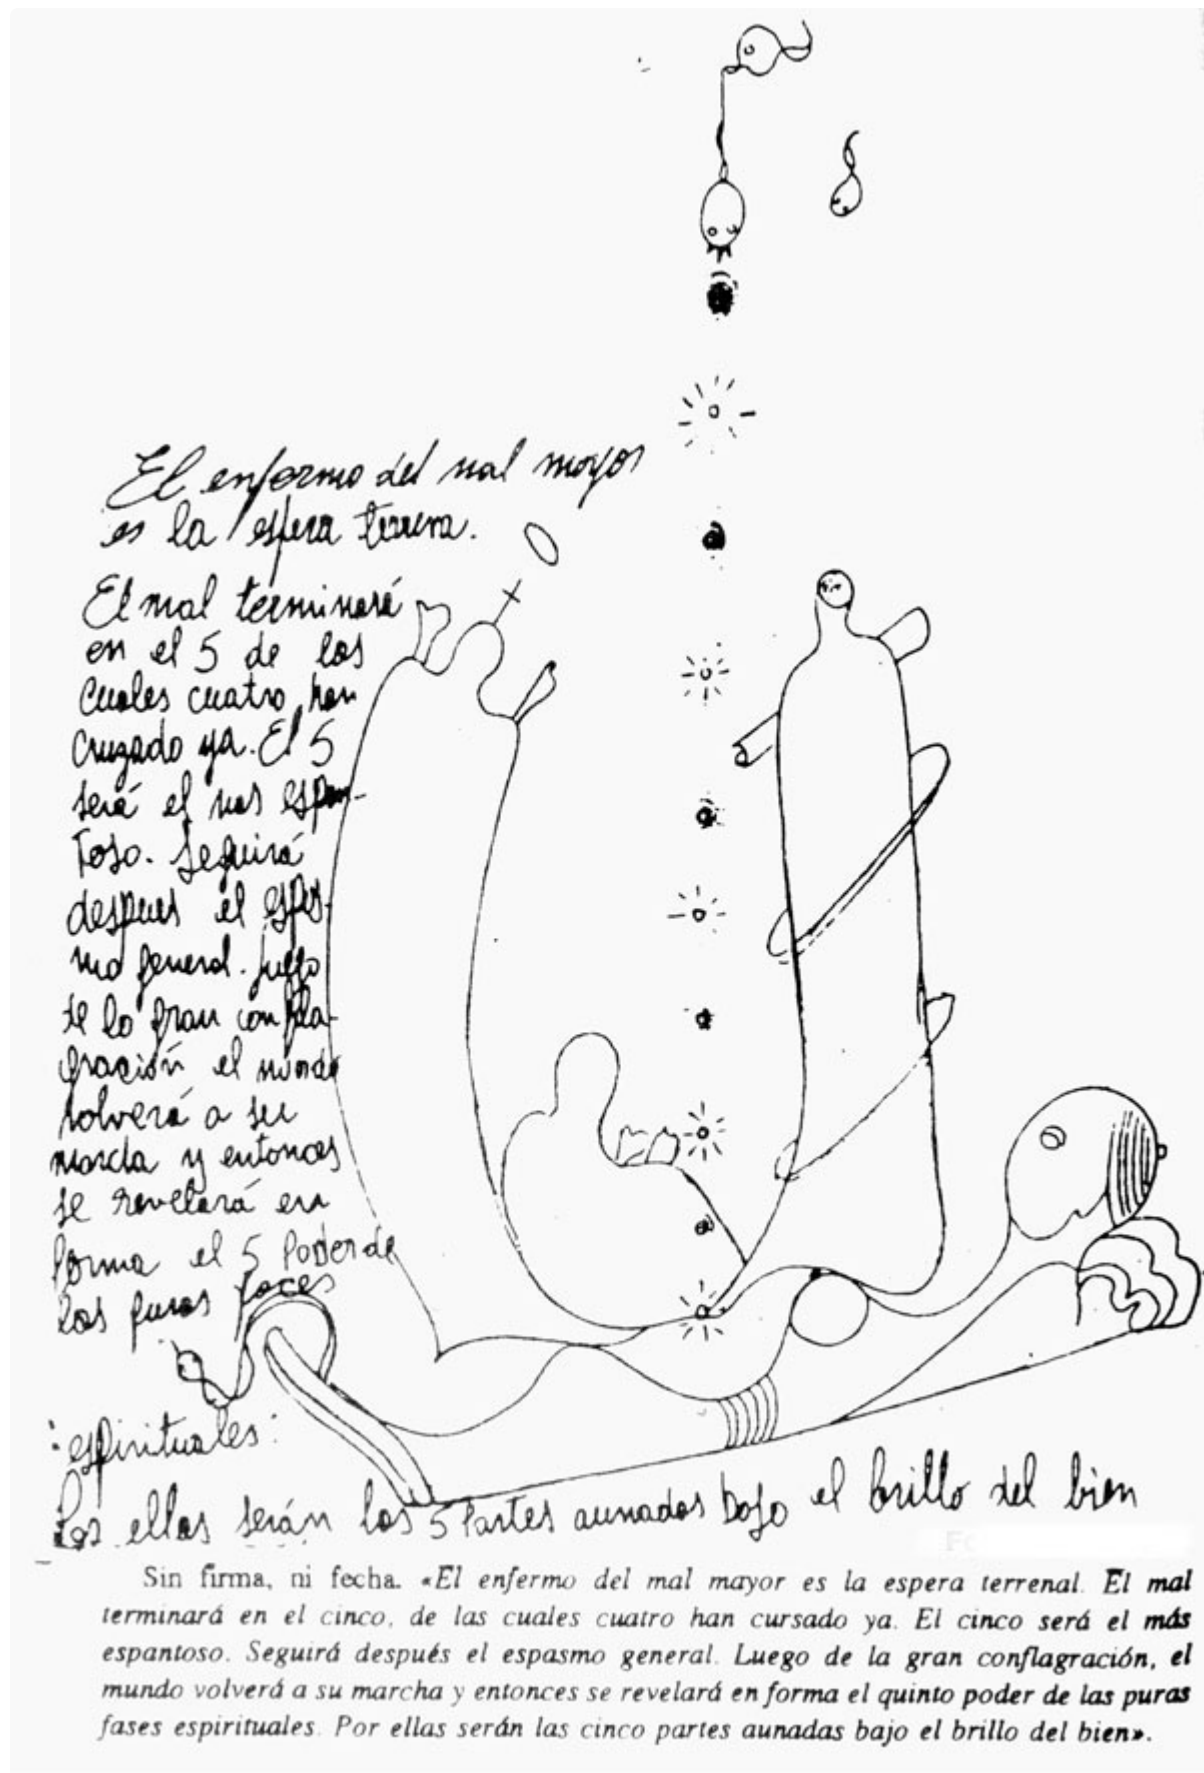 El enfermo del mal mayor
es la esfera terrena.
El mal terminará
en el 5 de los
cuales cuatro han
cruzado ya. El 5
será el mas espan-
toso. Seguirá
despues el espas-
mo general. Luego
de la gran confla-
gración el mundo
volverá a su
marcha y entonces
se revelará en
forma el 5 Poder de
las puras faces
espirituales:
Por ellas serán las 5 Partes aunadas bajo el brillo del bien
Sin firma, ni fecha. «El enfermo del mal mayor es la espera terrenal. El mal
terminará en el cinco, de las cuales cuatro han cursado ya. El cinco será el más
espantoso. Seguirá después el espasmo general. Luego de la gran conflagración, el
mundo volverá a su marcha y entonces se revelará en forma el quinto poder de las puras
fases espirituales. Por ellas serán las cinco partes aunadas bajo el brillo del bien».